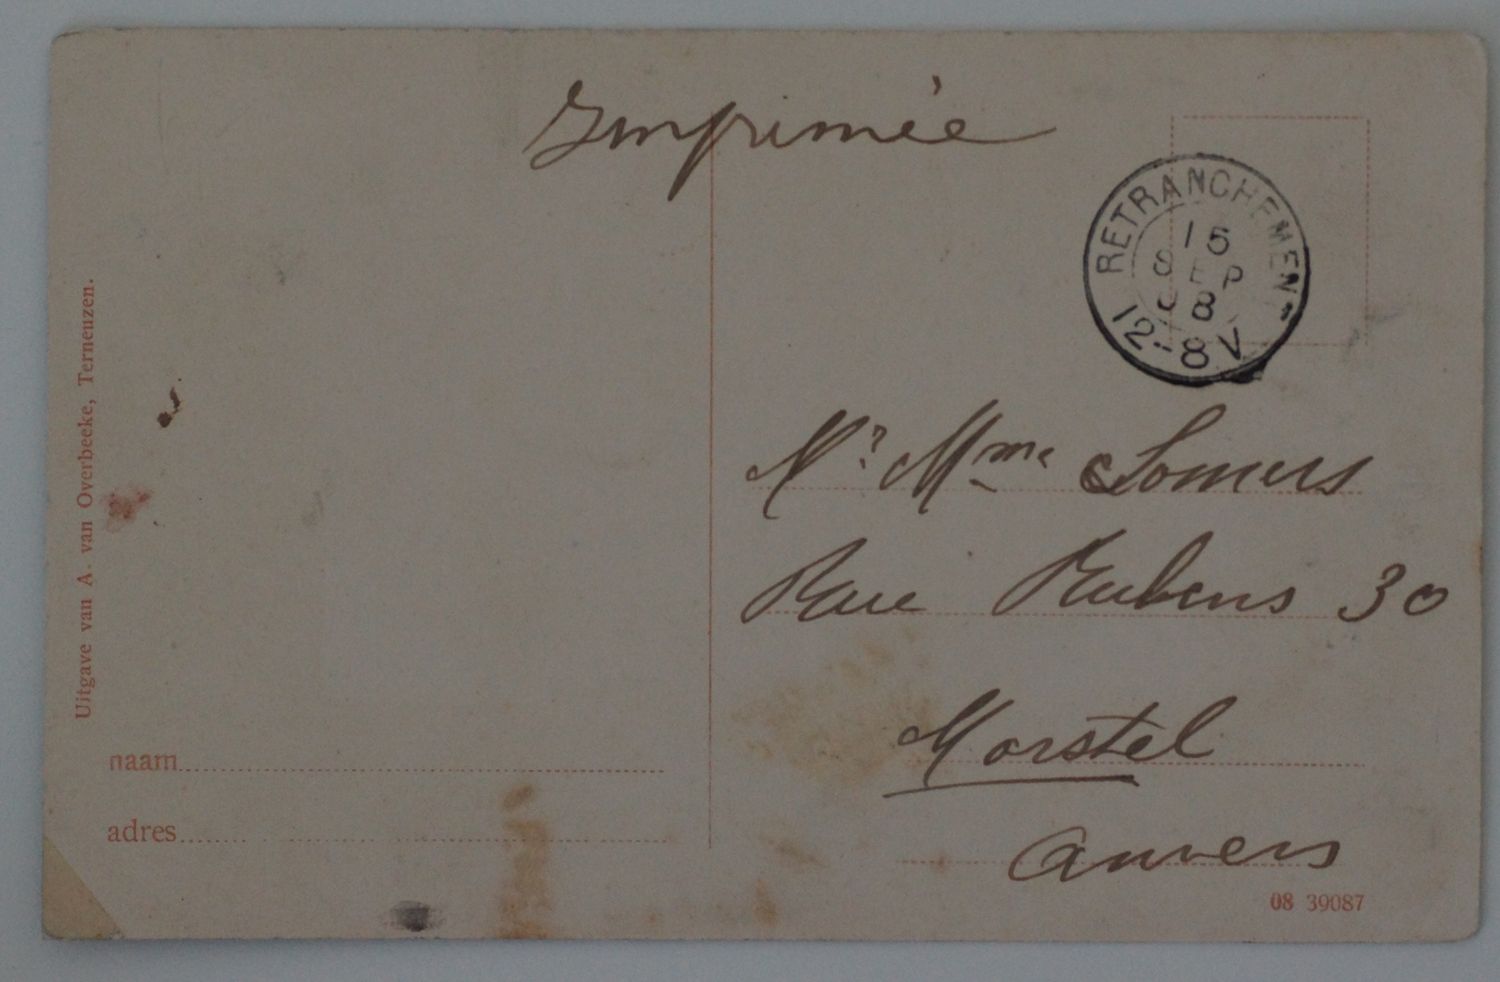 Imprimée
RETRANCHEMENT
15
SEP
08
12-8V
Mr Mme Somers
Rue Rubens 30
Morstel
Anvers
Uitgave van A. van Overbeeke, Terneuzen.
naam
adres
08 39087